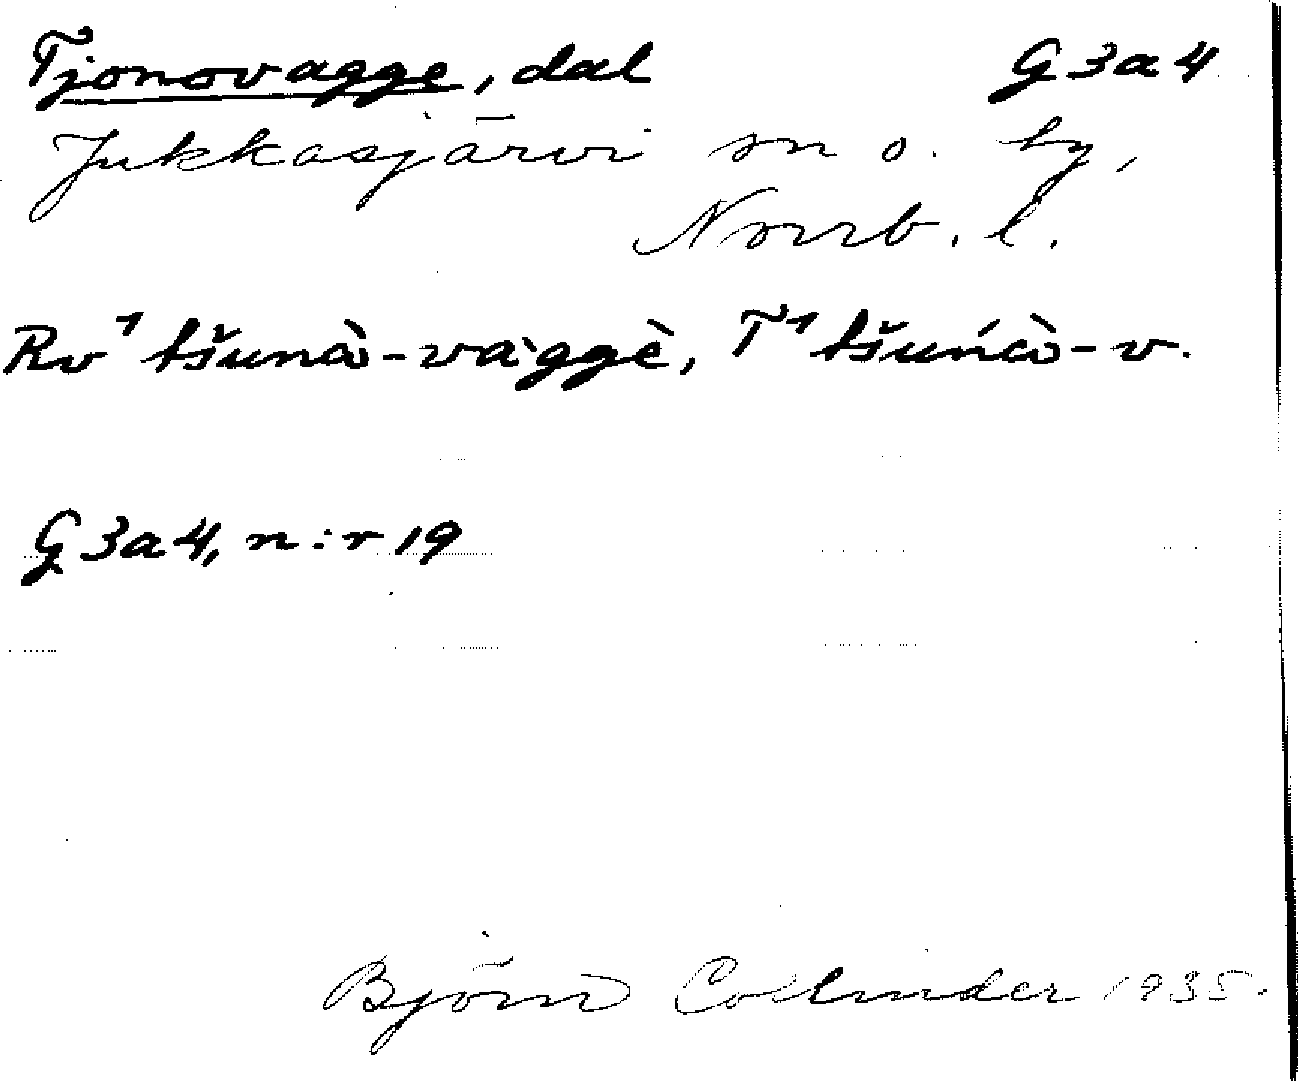 Tjonovagge, dal G 3 a 4
Jukkasjärvi sn o. by,
Norrb. l.
Rv¹ tšunɑ̀-vaˋggè, T¹ tšúnɑ̀-v.
G 3 a 4, n:r 19
Björn Collinder 1935.